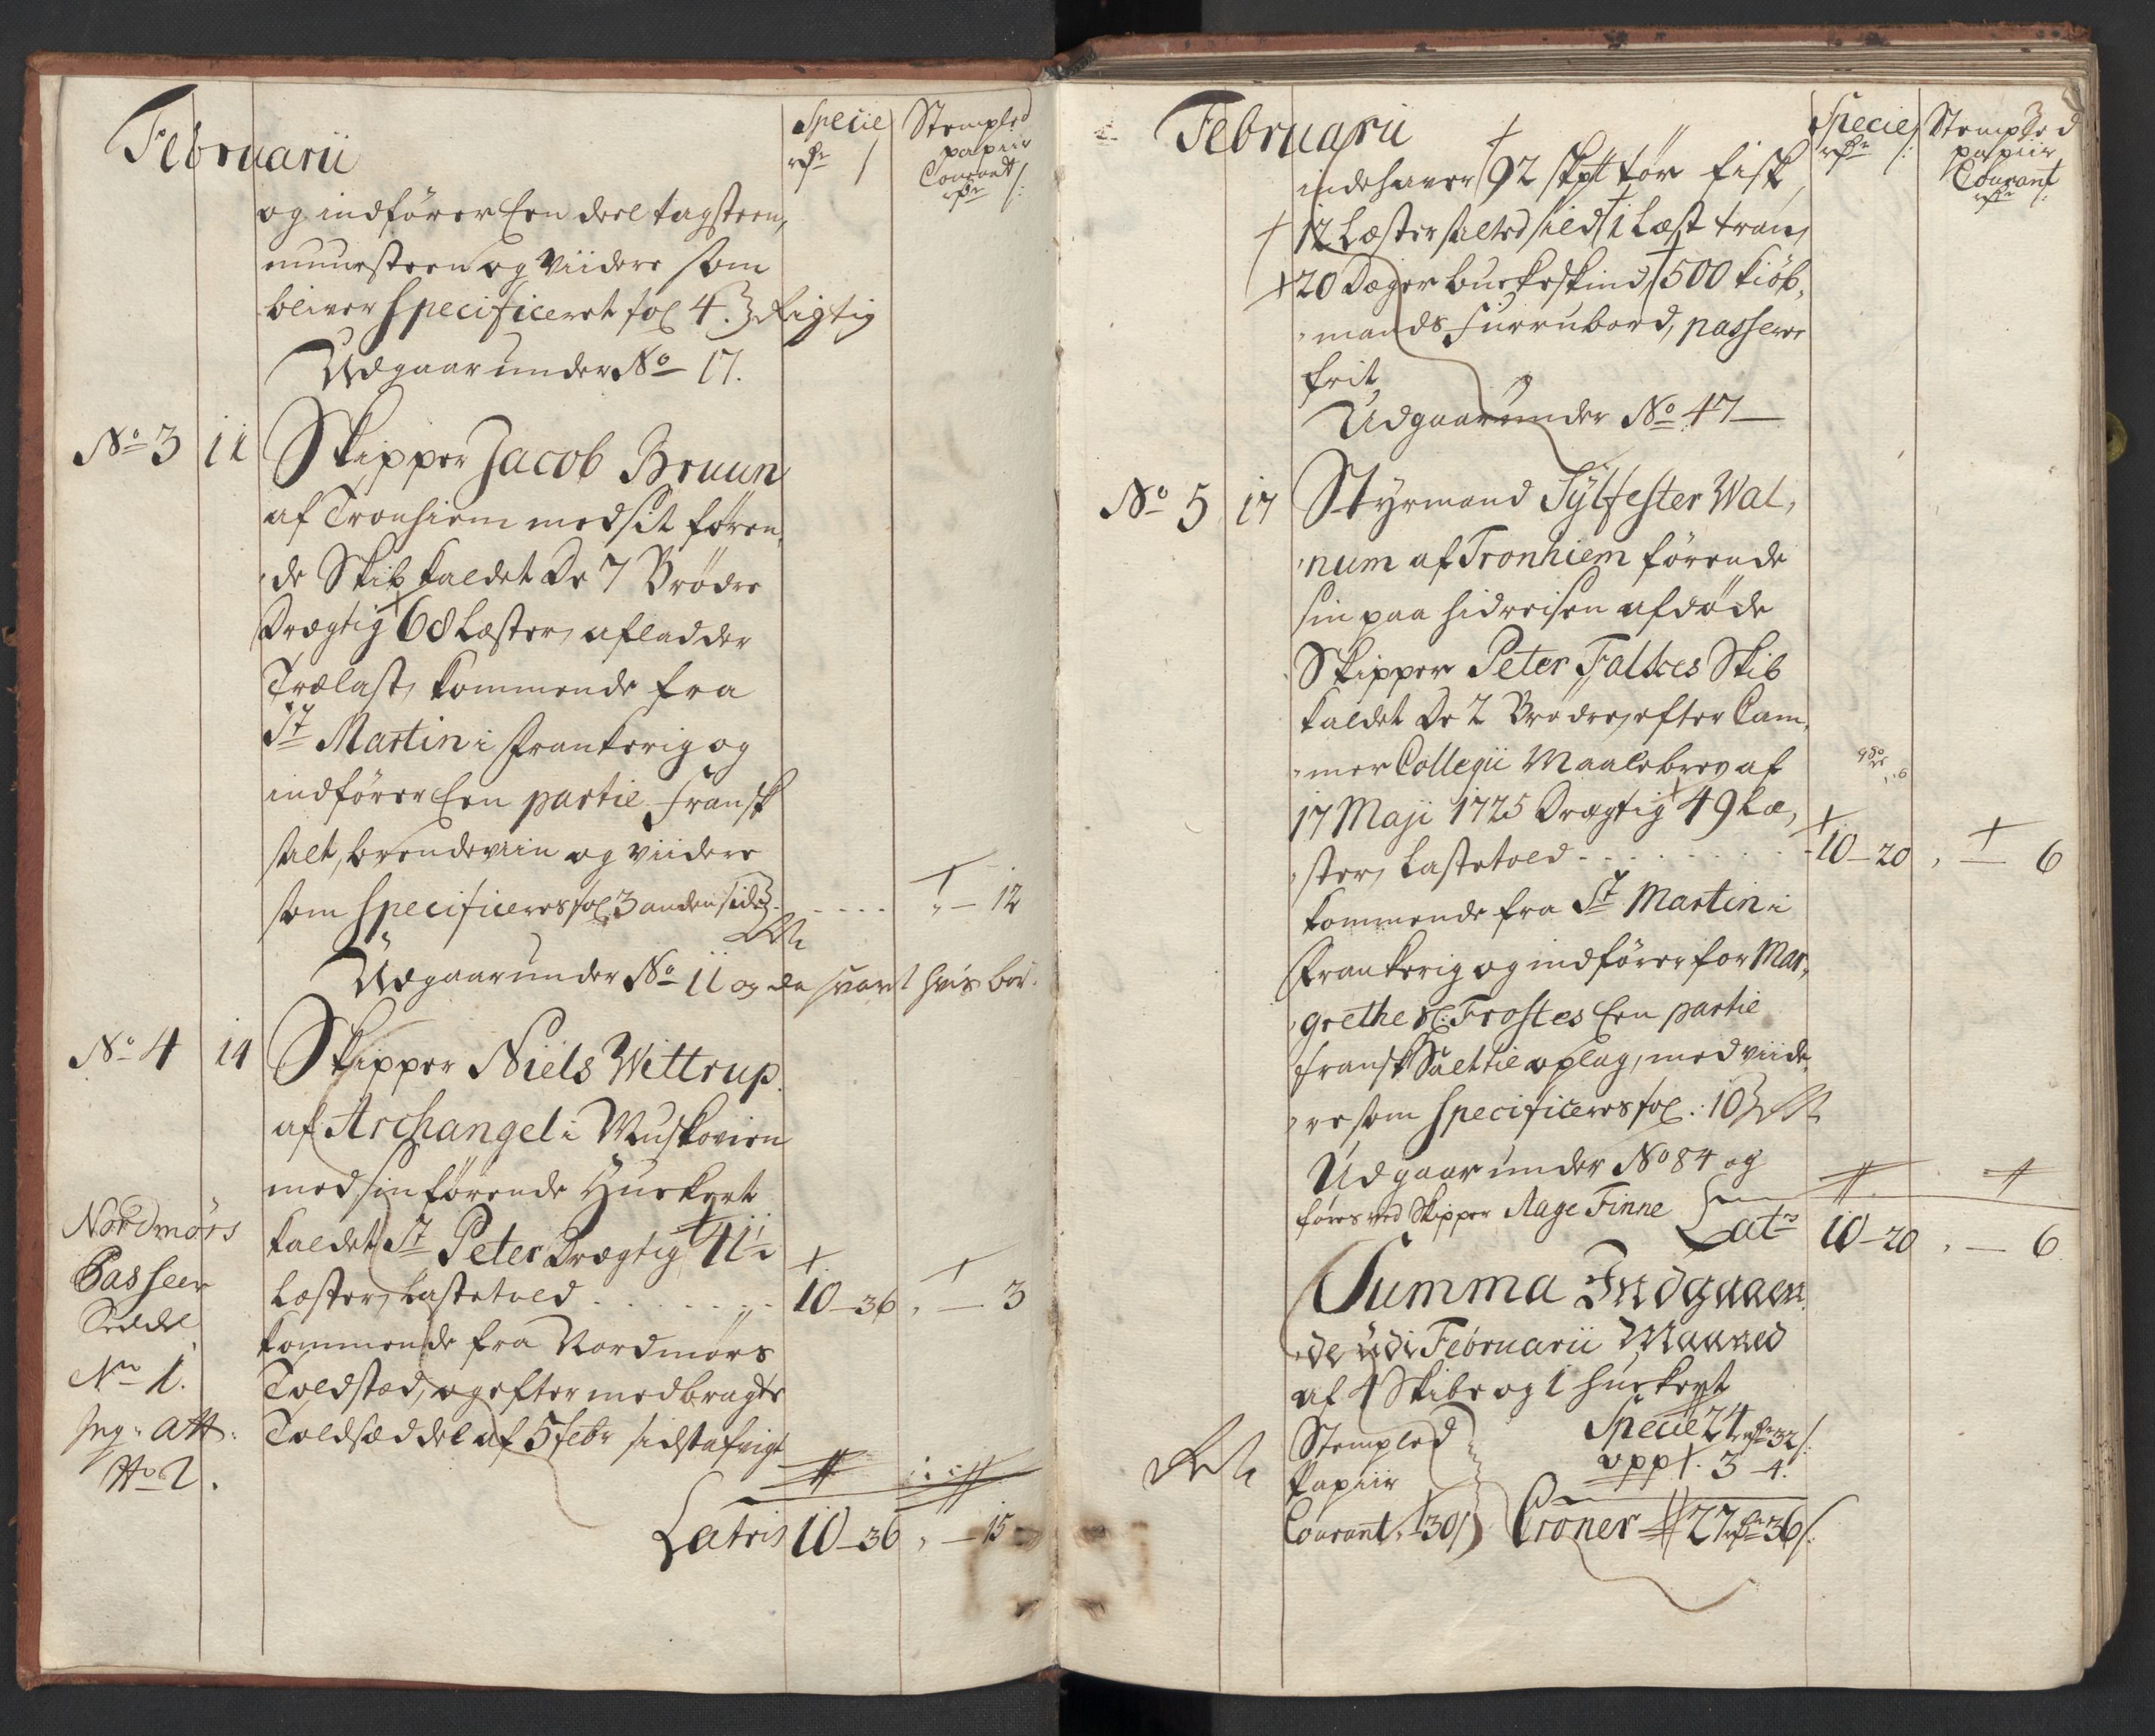 Februarii
Specie
rdr /
Stemplet
papiir
Courant
rdr /:
og indfører Een deel tagsteen,
muursteen og Viidere som
bliver Specificeret fol 4. Rigtig
Udgaar under No 17.
No 3 11 Skipper Jacob Bruun
af Tronhiem med sit føren,
de Skib kaldet De 7 Brødre
Drægtig 68 Læster, afladder
Trælast, kommende fra
St Martin i Frankerig og
indfører Een partie Fransk
salt, brendeviin og viidere
som Specificeres fol 3 anden side - 12
Udgaar under No 11 og da svart hvis bør.
No 4 14 Skipper Niels Wittrup
af Archangel i Muskovien
med sin førende Huckert
kaldet St Peter Drægtig 41½
Læster, Lastetold 10 - 36 - 3
kommende fra Nordmørs
Toldstæd, og efter medbragte
Toldsæddel af 5 febr sidst afvigt
Nordmørs
Passeer
Seddel
No 1.
No 2.
Latris 10 - 36 - 15
Februarii
Specie
rdr /:
Stempled
papiir
Courant
rdr /:
indehaver 92 skpd tør fisk,
12 Læster salted sild, 1 Læst tran,
20 Deger buckeskind, 500 kiøb,
mands Furrubord, passerer
frit,
Udgaar under No 47
No 5 17 Styrmand Sylfester Wal,
num af Tronhiem førende
sin paa hidreisen afdøde
Skipper Peter Falkes Skib
kaldet De 2 Brødre, efter Cam,
mer Collegii Maalebrev af
17 Maji 1725 Drægtig 49 Læ,
ster, Lastetold 10 - 20 - 6
kommende fra St Martin i
Frankerig og indfører for Mar,
grethe Sl: Frostes Een partie
fransk Salt til oplag, med viide,
re som Specificeres fol: 10
Udgaar under No 84 og
føres ved Skipper Aage Finne
Lats 10 - 20 - 6
Summa Indgaaen
de udi Februarii Maaned
af 4 Skibe og 1 huckert
Stempled
Papiir
Courant 30
Specie 24 rdr 32 /:
opp 3 - 4.
Croner 27 rdr 36 /: